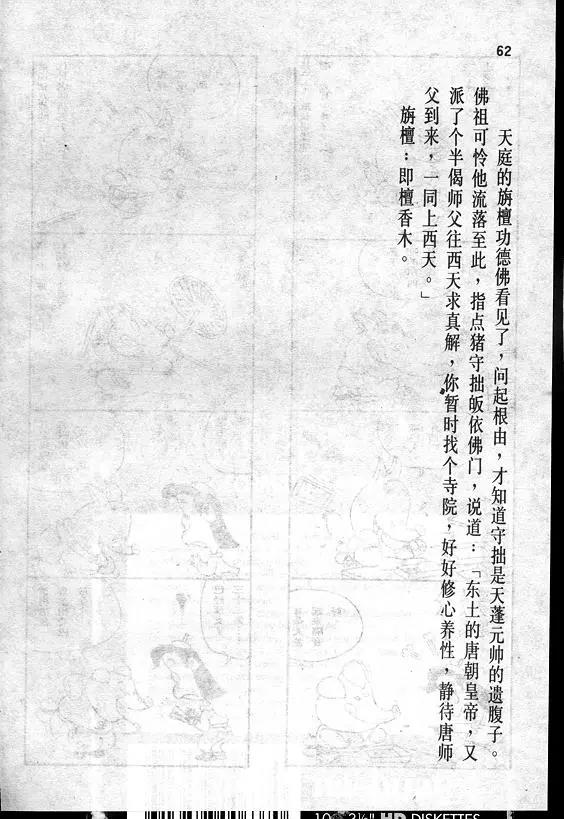 62
天庭的旃檀功德佛看见了，问起根由，才知道守拙是天蓬元帅的遗腹子。
佛祖可怜他流落至此，指点猪守拙皈依佛门，说道：「东土的唐朝皇帝，又
派了个半偈师父往西天求真解，你暂时找个寺院，好好修心养性，静待唐师
父到来，一同上西天。」
旃檀：即檀香木。
HD DISKETTES